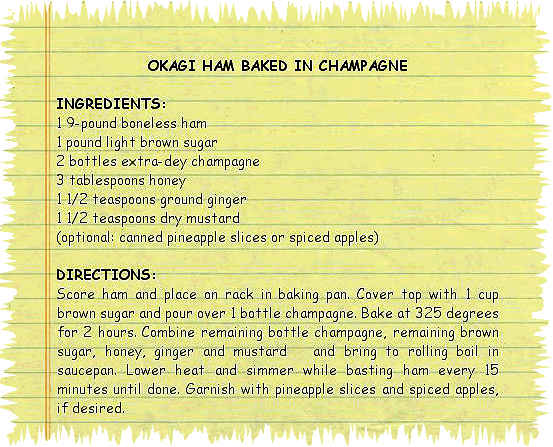 OKAGI HAM BAKED IN CHAMPAGNE
INGREDIENTS:
1 9-pound boneless ham
1 pound light brown sugar
2 bottles extra-dey champagne
3 tablespoons honey
1 1/2 teaspoons ground ginger
1 1/2 teaspoons dry mustard
(optional: canned pineapple slices or spiced apples)
DIRECTIONS:
Score ham and place on rack in baking pan. Cover top with 1 cup
brown sugar and pour over 1 bottle champagne. Bake at 325 degrees
for 2 hours. Combine remaining bottle champagne, remaining brown
sugar, honey, ginger and mustard and bring to rolling boil in
saucepan. Lower heat and simmer while basting ham every 15
minutes until done. Garnish with pineapple slices and spiced apples,
if desired.